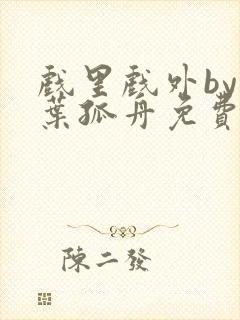 戲里戲外by
葉孤舟免費
陳二發